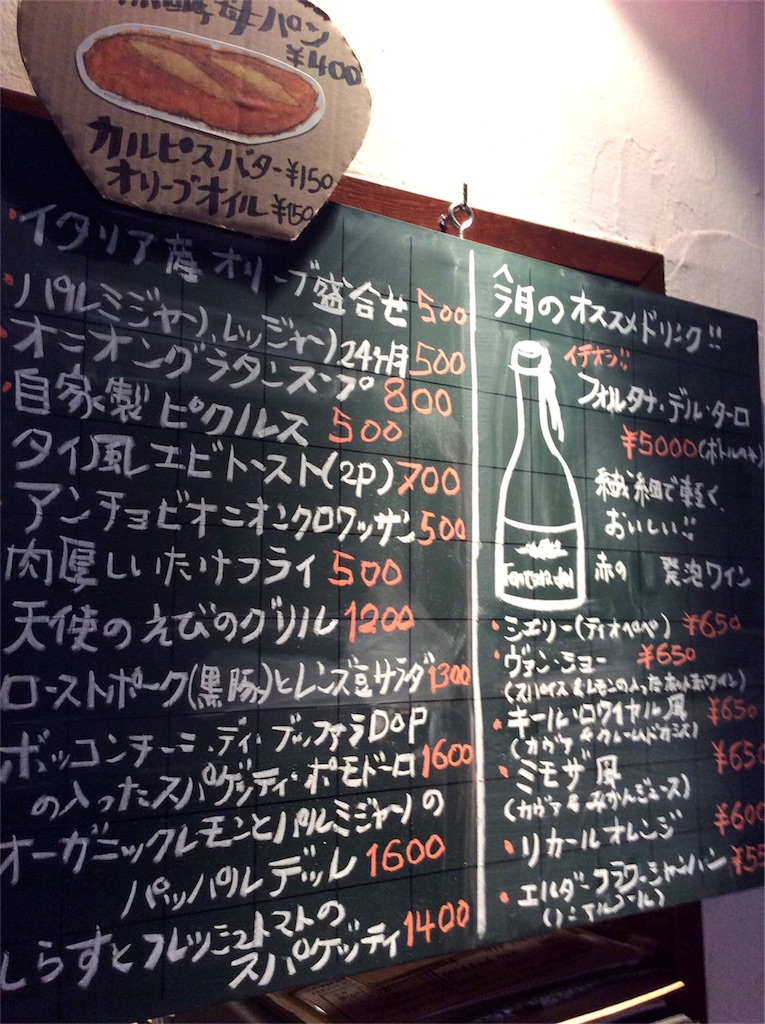 酵母パン
¥400
カルピスバター¥150
オリーブオイル¥150
イタリア産オリーブ盛合せ 500
パルミジャーノ.レッジャーノ24ヶ月 500
オニオングラタンスープ 800
自家製ピクルス 500
タイ風エビトースト(2P) 700
アンチョビオニオンクロワッサン 500
肉厚しいたけフライ 500
天使のえびのグリル 1200
ローストポーク(黒豚)とレンズ豆サラダ 1300
ボッコンチーニ・ディ・ブッファラDOP
の入ったスパゲッティ・ポモドーロ 1600
オーガニックレモンとパルミジャーノの
パッパルデッレ 1600
しらすとフレッシュトマトの
スパゲッティ 1400
今月のオススメドリンク!!
イチオシ!!
フォルタナ・デル・ターロ
¥5000(ボトルのみ)
繊細で軽く、
おいしい!!
赤の 発泡ワイン
・シェリー(ティオペペ) ¥650
・ヴァン・ショー ¥650
(スパイス&レモンの入ったホット赤ワイン)
・キール・ロワイヤル風 ¥650
(カヴァ&クレームドカシス)
・ミモザ風 ¥650
(カヴァ&みかんジュース)
・リカールオレンジ ¥600
・エルダーフラワーシャンパン ¥55
(ノンアルコール)